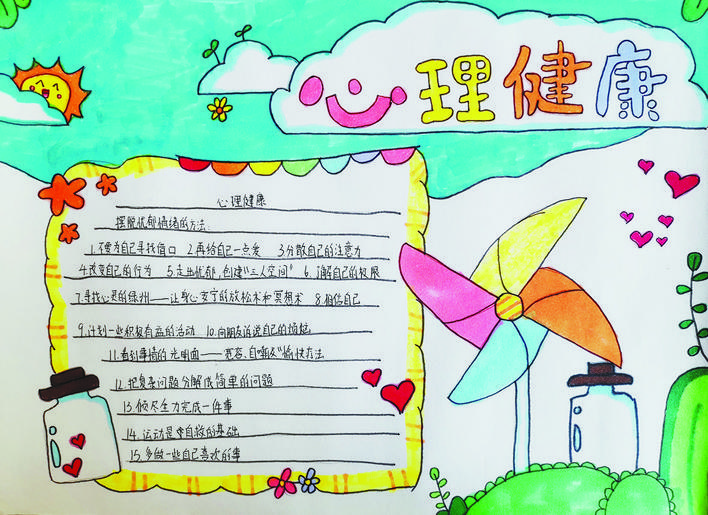 心理健康
心理健康
摆脱忧郁情绪的方法
1.不要为自己寻找借口 2.再给自己一点爱 3.分散自己的注意力
4.改变自己的行为 5.走出忧郁,创建“三人空间” 6.了解自己的极限
7.寻找心灵的绿州——让身心安宁的放松术和冥想术 8.相信自己
9.计划一些积极有益的活动 10.向朋友诉说自己的烦恼
11.看到事情的光明面——宽容、自嘲及“愉快疗法
12.把复杂问题分解成简单的问题
13.倾尽全力完成一件事
14.运动是自救的基础
15.多做一些自己喜欢的事